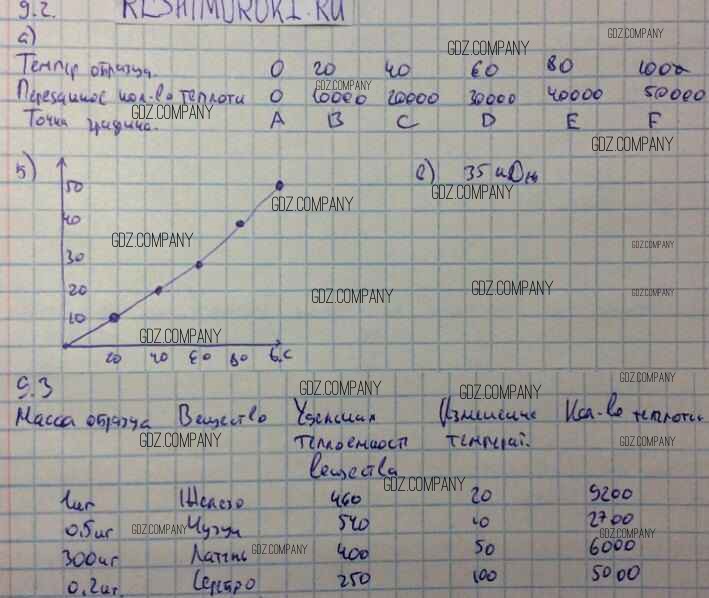 9.2. RESHIMUROKI.RU
а)
GDZ.COMPANY GDZ.COMPANY
Темпер образца. 0 20 40 60 80 100
GDZ.COMPANY
Переданное кол-во теплоты 0 10000 20000 30000 40000 50000
GDZ.COMPANY
Точка графика. A B C D E F
GDZ.COMPANY
б) с) 35 кДж
50
GDZ.COMPANY GDZ.COMPANY
40
GDZ.COMPANY GDZ.COMPANY
30
20
GDZ.COMPANY GDZ.COMPANY GDZ.COMPANY
10
GDZ.COMPANY
20 40 60 80 t,c
9.3
GDZ.COMPANY GDZ.COMPANY GDZ.COMPANY
Масса образца Вещество Удельная Изменение Кол-во теплоты
GDZ.COMPANY GDZ.COMPANY
теплоемкост температ.
вещества
GDZ.COMPANY
1кг Железо 460 20 9200
0.5кг Чугун 540 10 2700
GDZ.COMPANY GDZ.COMPANY
300кг Латунь 400 50 6000
GDZ.COMPANY GDZ.COMPANY
0.2кг. Серебро 250 100 5000